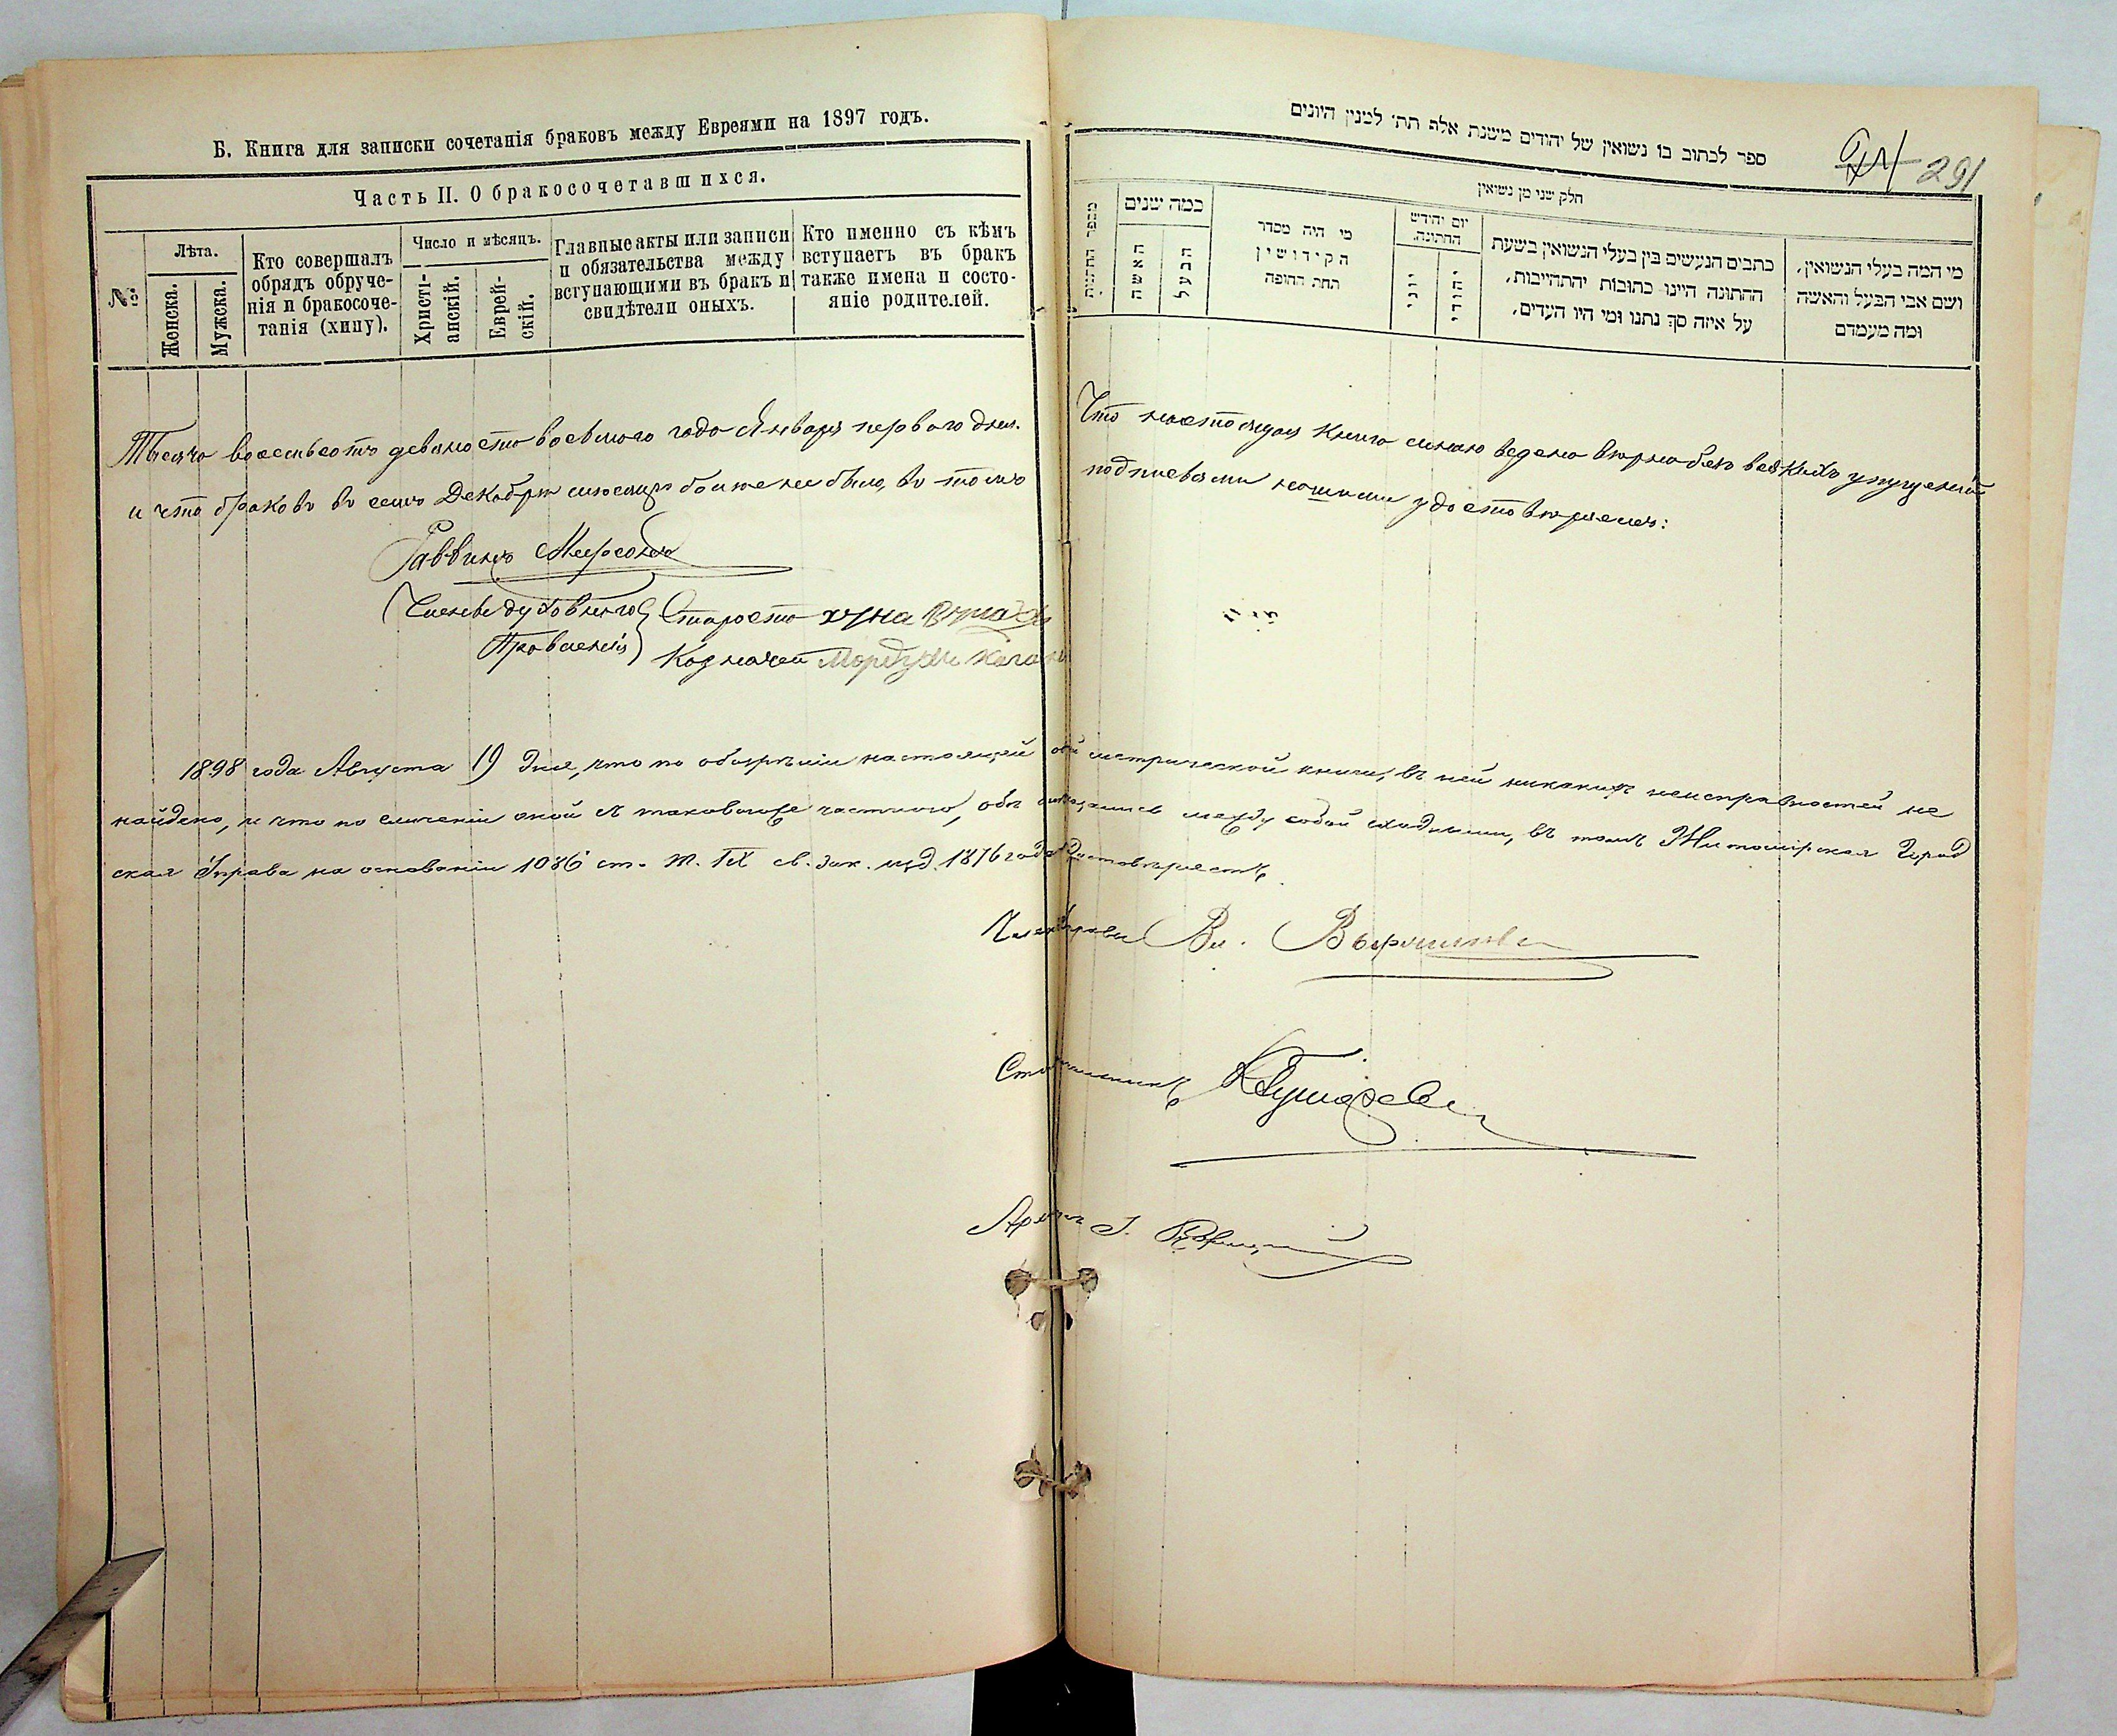 Б. Книга для записки сочетанія браковъ между Евреями на 1897 годъ.
Часть II. О бракосочетавшихся.
№
Лѣта.
Женска.
Мужска.
Кто совершалъ
обрядъ обруче-
нія и бракосоче-
танія (хипу).
Число и мѣсяцъ.
Христі-
анскій.
Еврей-
скій.
Главные акты или записи
и обязательства между
вступающими въ бракъ и
свидѣтели оныхъ.
Кто именно съ кѣмъ
вступаетъ въ бракъ
также имена и состо-
яніе родителей.
ספר לכתוב בו נשואין של יהודים משנת אלף תת׳ למנין היונים
291
חלק שני מן נשואין
מספר החתונות
כמה שנים
האשה
הבעל
מי היה מסדר
הקידושין
תחת החופה
יום וחודש
החתונה.
יוני
יהודי
כתבים הנעשים בין בעלי הנשואין בשעת
החתונה היינו כתובות והתחייבות,
על איזה סך נתנו ומי היו העדים,
מי המה בעלי הנשואין,
ושם אבי הבעל והאשה
ומה מעמדם
Тысяча восемьсотъ девяносто восьмого года Января первого дня. Что настоящая книга мною ведена вѣрно безъ всякихъ упущеній
и что браковъ въ семъ Декабрѣ мѣсяцѣ болѣе не было, въ томъ подписями нашими удостовѣряемъ:
Раввинъ
Члены духовного Староста
Правленія Казначей Мордухъ Коганъ
1898 года Августа 19 дня, что по обозрѣніи настоящей метрической книги, въ ней никакихъ неисправностей не
найдено, и что по сличеніи оной съ таковою же частного, обѣ оказались между собой сходными, въ томъ Житомірская Город
ская Управа на основаніи 1086 ст. т. IX св. зак. изд. 1876 года удостовѣряетъ.
Членъ Управы Вл.